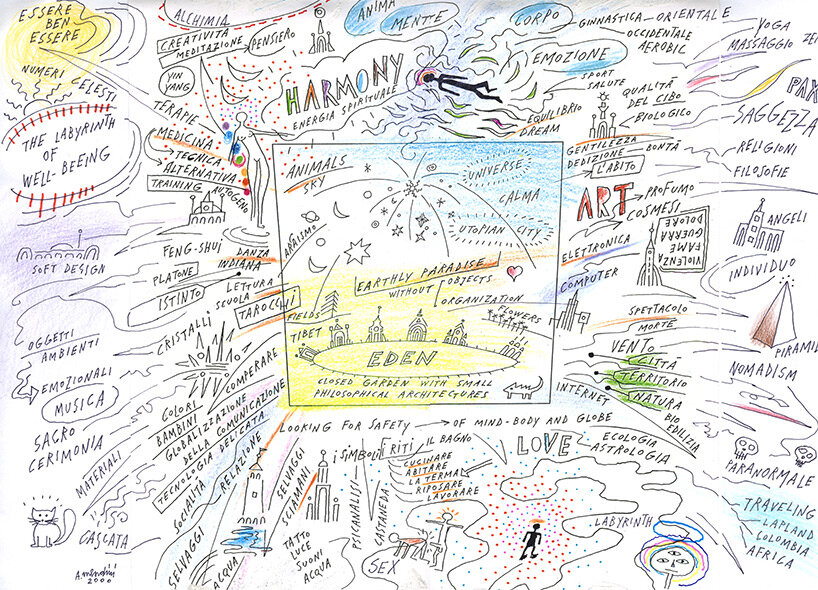 ESSERE
BEN
ESSERE
NUMERI
CELESTI
THE LABYRINTH
OF
WELL-BEEING
ALCHIMIA
CREATIVITÀ
MEDITAZIONE
PENSIERO
YIN
YANG
TERAPIE
MEDICINA
TEGNICA
ALTERNATIVA
TRAINING AUTOGENO
ANIMA
MENTE
HARMONY
ENERGIA SPIRITUALE
CORPO
GINNASTICA
ORIENTALE
OCCIDENTALE
AEROBIC
YOGA
MASSAGGIO
ZEN
EMOZIONE
SPORT
SALUTE
QUALITÀ
DEL CIBO
BIOLOGICO
PAX
SAGGEZZA
EQUILIBRIO
DREAM
GENTILEZZA
DEDIZIONE
BONTÀ
L'ABITO
RELIGIONI
FILOSOFIE
ART
PROFUMO
COSMESI
VIOLENZA
FAME
GUERRA
DOLORE
ANGELI
INDIVIDUO
ELETTRONICA
COMPUTER
SPETTACOLO
MORTE
PIRAMID
VENTO
CITTÀ
TERRITORIO
NATURA
INTERNET
BIO
EDILIZIA
NOMADISM
PARANORMALE
ANIMALS
SKY
UNIVERSE
CALMA
UTOPIAN CITY
EARTHLY PARADISE
WITHOUT
OBJECTS
ORGANIZATION
FIELDS
FLOWERS
TIBET
EDEN
CLOSED GARDEN WITH SMALL
PHILOSOPHICAL ARCHITECTURES
SOFT DESIGN
FENG-SHUI
DANZA
INDIANA
PLATONE
ISTINTO
LETTURA
SCUOLA
TAROCCHI
CRISTALLI
OGGETTI
AMBIENTI
EMOZIONALI
MUSICA
SACRO
CERIMONIA
MATERIALI
CASCATA
COMPERARE
COLORI
BAMBINI
GLOBALIZZAZIONE
DELLA COMUNICAZIONE
TECNOLOGIA DELICATA
RELAZIONE
SOCIALITÀ
SELVAGGI
ACQUA
SELVAGGI
SCIAMANI
I SIMBOLI
I RITI
TATTO
LUCE
SUONI
ACQUA
PSICANALISI
CASTANEDA
LOOKING FOR SAFETY
OF MIND-BODY AND GLOBE
IL BAGNO
CUCINARE
ABITARE
LA TERMA
RIPOSARE
LAVORARE
SEX
LOVE
ECOLOGIA
ASTROLOGIA
LABYRINTH
TRAVELING
LAPLAND
COLOMBIA
AFRICA
2000